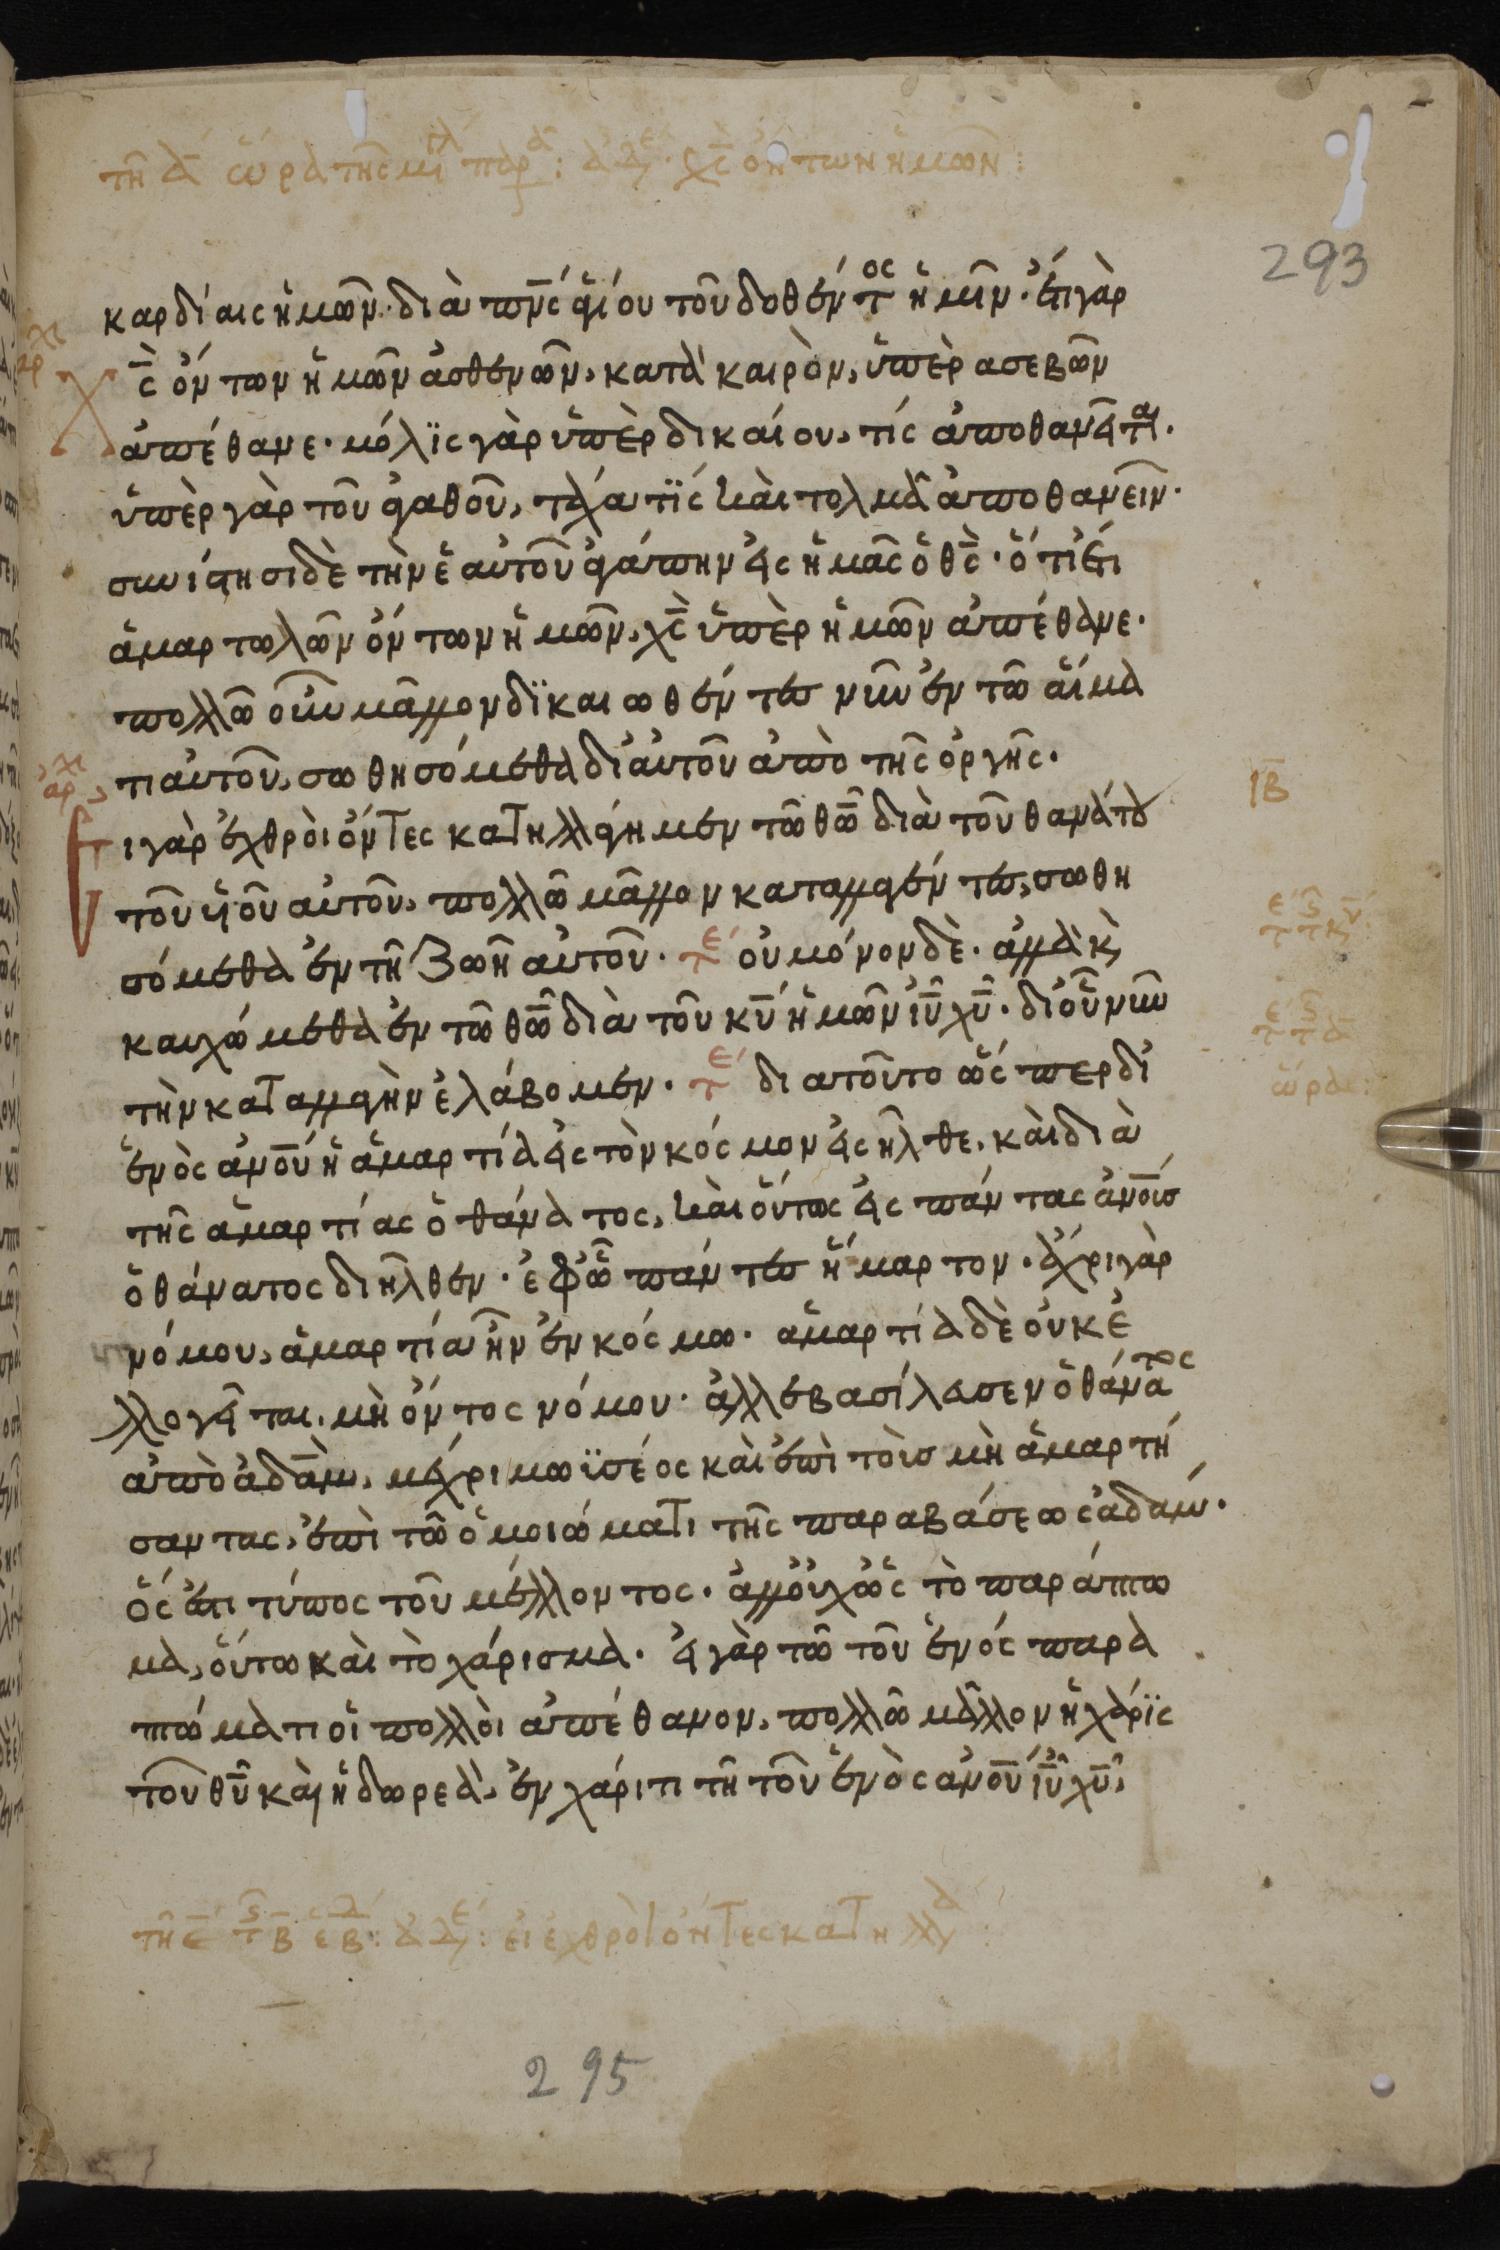 τῆ α ὥρα τῆς μ παρ: ἀδε· χς ὄντων ἡμῶν:
293
καρδίαις ἡμῶν· διὰ πνς ἁγίου τοῦ δοθέντος ἡμῖν· ἔτι γὰρ
χς ὄντων ἡμῶν ἀσθενῶν, κατὰ καιρὸν, ὑπὲρ ασεβῶν
ἀπέθανε· μόλϊς γὰρ ὑπὲρ δικαίου, τίς ἀποθανεῖται·
ὑπὲρ γὰρ τοῦ ἀγαθοῦ, τάχα τϊς καὶ τολμᾶ ἀποθανεῖν·
συνίστησι δὲ τὴν ἑαυτοῦ ἀγάπην εἰς ἡμᾶς ὁ θς· ὅτι ἔτι
ἁμαρτωλῶν ὄντων ἡμῶν, χς ὑπὲρ ἡμῶν ἀπέθανε·
πολλῶ οὖν μᾶλλον δϊκαιωθέντες νῦν ἐν τῶ αἵμα
τι αὐτοῦ, σωθησόμεθα δι αὐτοῦ ἀπὸ τῆς ὀργῆς·
ιβ
Ει γὰρ ἐχθροὶ ὄντες κατηλλάγημεν τῶ θῶ διὰ τοῦ θανάτου
τοῦ υἱοῦ αὐτοῦ, πολλῶ μᾶλλον καταλλαγέντες, σωθη
σόμεθα ἐν τῆ ζωῆ αὐτοῦ· τε οὐ μόνον δὲ· ἀλλὰ κ
καυχώμεθα ἐν τῶ θῶ διὰ τοῦ κυ ἡμῶν ιυ χυ· δι οὗ νῦν
τὴν καταλλαγὴν ἐλάβομεν· τε δι ατοῦτο ὥσπερ δι
ὥρας:
ἑνὸς ανου ἡ ἁμαρτία εἰς τὸν κόσμον εἰςῆλθε, καὶ διὰ
τῆς ἁμαρτίας ὁ θάνατος, καὶ οὕτως εἰς πάντας ανους
ὁ θάνατος διῆλθεν· ἐφ ὧ πάντες ἥμαρτον· ἄχρι γὰρ
νόμου, ἁμαρτία ἦν ἐν κόσμω· ἁμαρτία δὲ οὐκ ἐ
λλογεῖται, μὴ ὄντος νόμου· ἀλλ ἐβασίλευσεν ὁ θάνατος
ἀπὸ ἀδὰμ, μέχρι μωϊσέος καὶ ἐπὶ τοὶς μὴ ἁμαρτή
σαντας, ἐπὶ τῶ ὁμοιώματι τῆς παραβάσεως ἀδαμ·
ὅς ἐστι τύπος τοῦ μέλλοντος· ἀλλ οὐχ ὡς τὸ παράπτω
μα, οὕτω καὶ τὸ χάρισμα· εἰ γὰρ τῶ τοῦ ἑνός παρα
πτώματι οἱ πολλοὶ ἀπέθανον, πολλῶ μᾶλλον ἡ χάρϊς
τοῦ θυ καὶ ἡ δωρεὰ, ἐν χάριτι τῆ τοῦ ἑνὸς ανου ιυ χυ,
τῆ ε τ β εβ: ἀδε: εἰ ἐχθροὶ ὄντες κατηλλαγ:
295